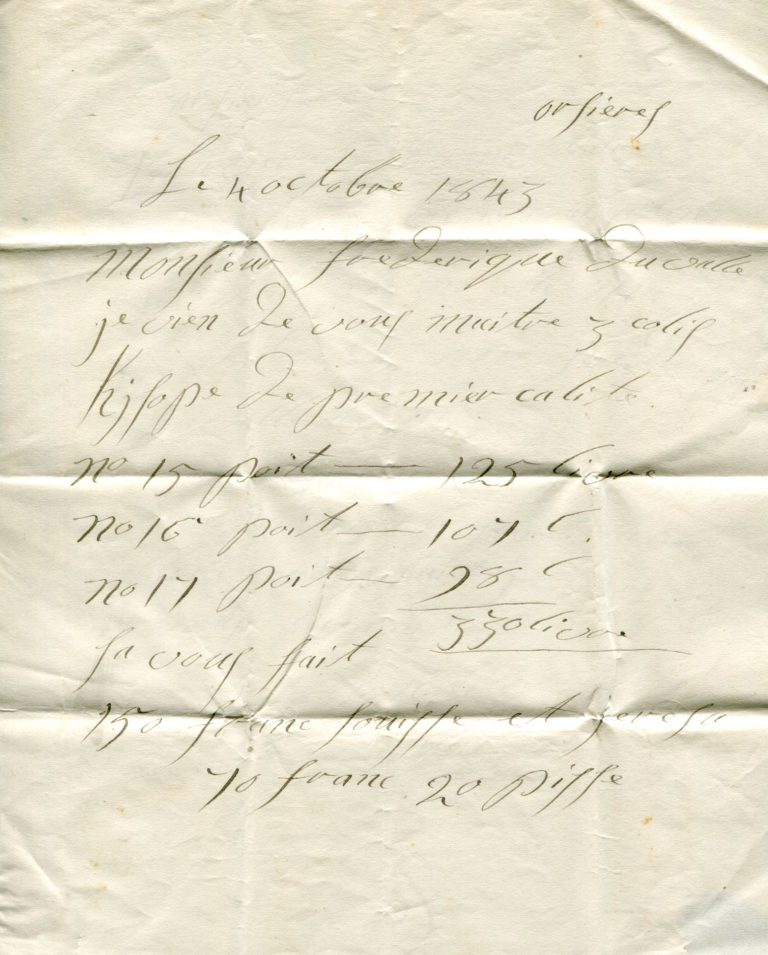 orsieres
Le 4 octobre 1843
Monsieur frederique
je vien de vous maitre 3 colis
de premier calite
no 15 poit — 125 livre
no 16 poit — 107 l.
no 17 poit — 98 l
330 livre
sa vous fait
150 franc souisse et
70 franc 20 pisse